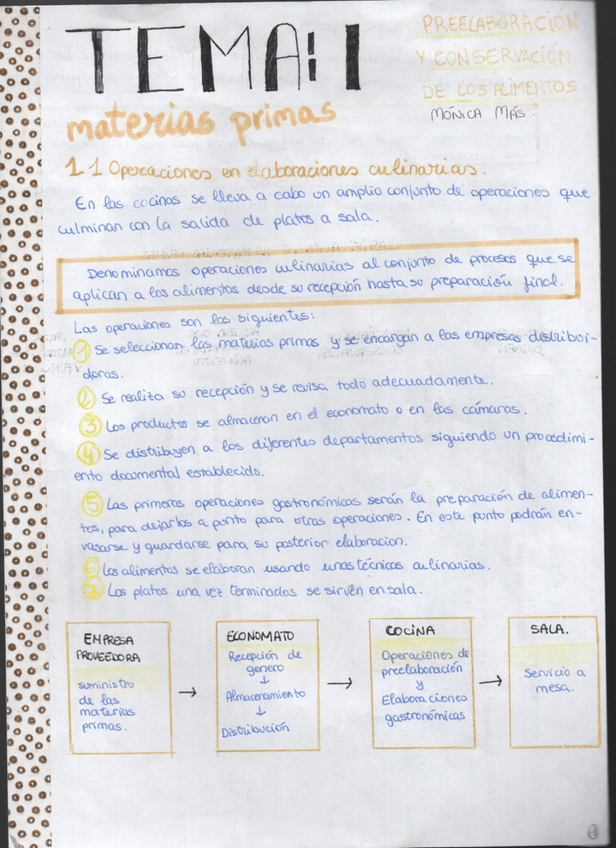 TEMA: 1
PREELABORACIÓN
Y CONSERVACIÓN
DE LOS ALIMENTOS
MÓNICA MÁS.
materias primas
1.1 Operaciones en elaboraciones culinarias.
En las cocinas se lleva a cabo un amplio conjunto de operaciones que
culminan con la salida de platos a sala.
Denominamos operaciones culinarias al conjunto de procesos que se
aplican a los alimentos desde su recepción hasta su preparación final.
Las operaciones son las siguientes:
1 Se seleccionan las materias primas y se encargan a las empresas distribui-
doras.
2 Se realiza su recepción y se revisa todo adecuadamente.
3 Los productos se almacenan en el economato o en las cámaras.
4 Se distribuyen a los diferentes departamentos siguiendo un procedimi-
ento documental establecido.
5 Las primeras operaciones gastronómicas serán la preparación de alimen-
tos, para dejarlos a punto para otras operaciones. En este punto podrán en-
vasarse y guardarse para su posterior elaboracion.
6 Los alimentos se elaboran usando unas técnicas culinarias.
7 Los platos una vez terminados se sirven en sala.
EMPRESA
PROVEEDORA
suministro
de las
materias
primas.
→
ECONOMATO
Recepción de
genero
↓
Almacenamiento
↓
Distribución
→
COCINA
Operaciones de
preelaboración
y
Elaboraciones
gastronómicas
→
SALA.
Servicio a
mesa.